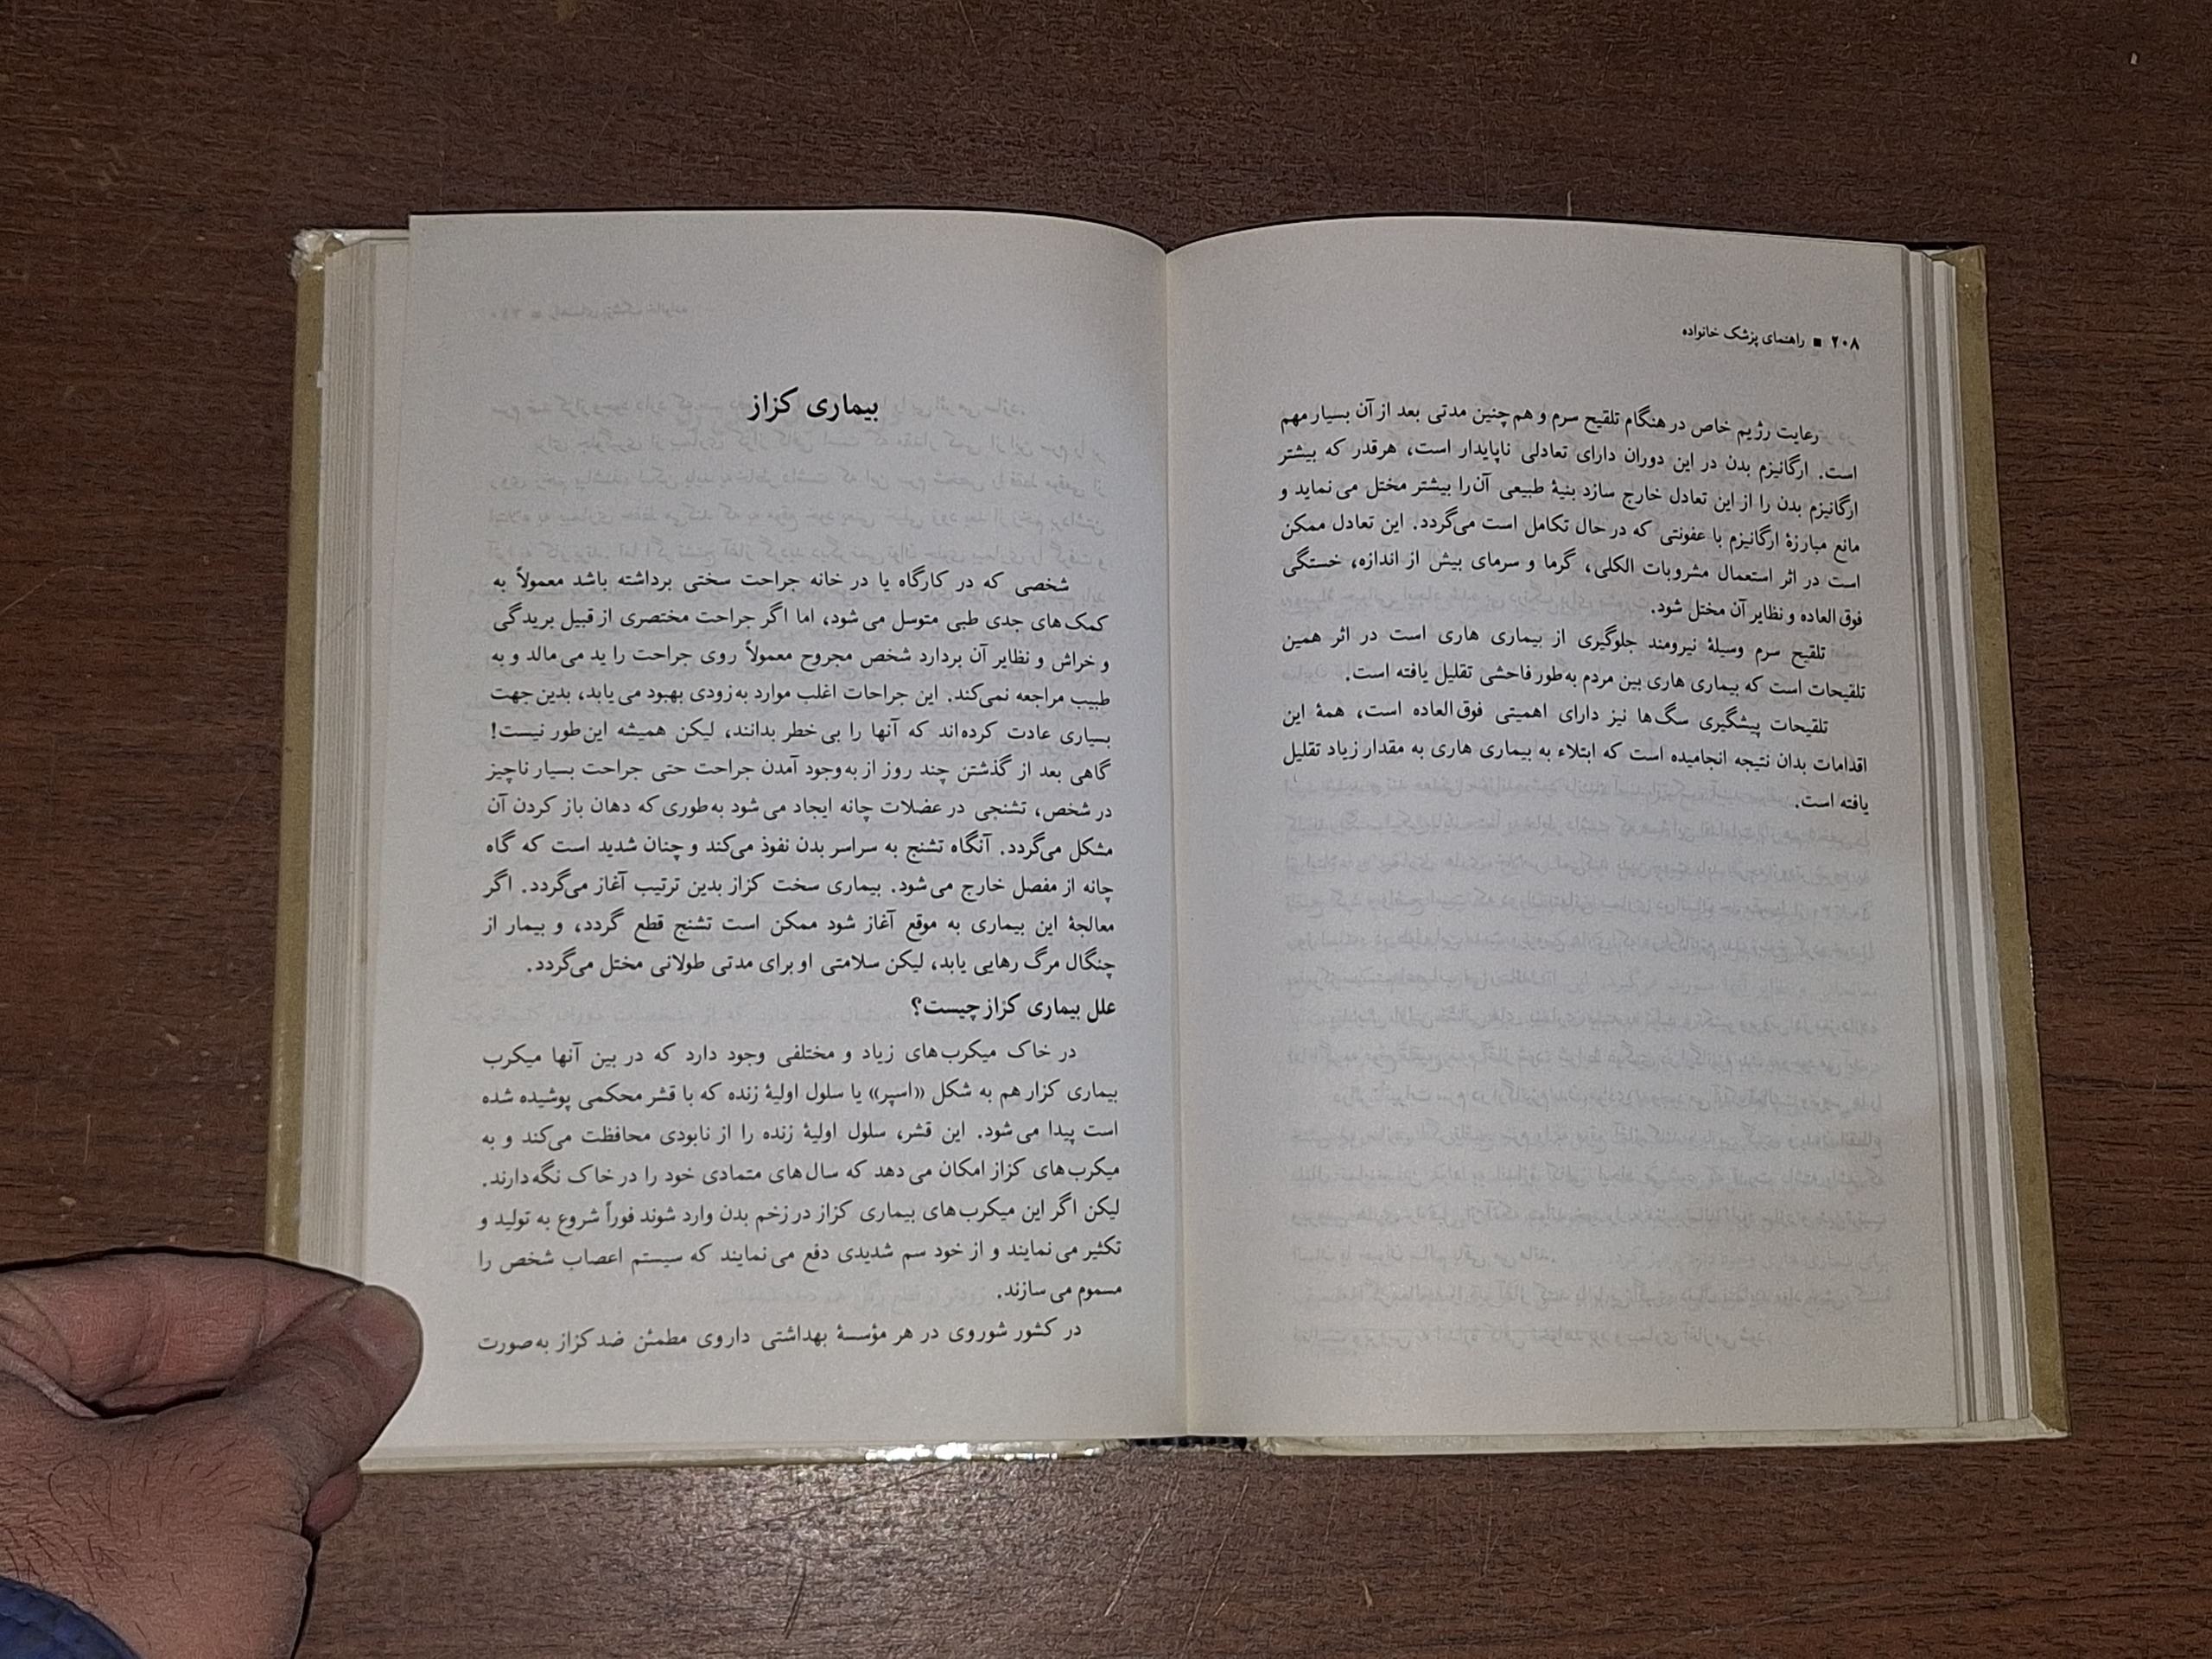 ۲۰۸ ■ راهنمای پزشک خانواده
رعایت رژیم خاص در هنگام تلقیح سرم و هم‌چنین مدتی بعد از آن بسیار مهم
است. ارگانیزم بدن در این دوران دارای تعادلی ناپایدار است، هرقدر که بیشتر
ارگانیزم بدن را از این تعادل خارج سازد بنیهٔ طبیعی آن‌را بیشتر مختل می‌نماید و
مانع مبارزهٔ ارگانیزم با عفونتی که در حال تکامل است می‌گردد. این تعادل ممکن
است در اثر استعمال مشروبات الکلی، گرما و سرمای بیش از اندازه، خستگی
فوق‌العاده و نظایر آن مختل شود.
تلقیح سرم وسیلهٔ نیرومند جلوگیری از بیماری هاری است در اثر همین
تلقیحات است که بیماری هاری بین مردم به‌طور فاحشی تقلیل یافته است.
تلقیحات پیشگیری سگ‌ها نیز دارای اهمیتی فوق‌العاده است، همهٔ این
اقدامات بدان نتیجه انجامیده است که ابتلاء به بیماری هاری به مقدار زیاد تقلیل
یافته است.
بیماری کزاز
شخصی که در کارگاه یا در خانه جراحت سختی برداشته باشد معمولاً به
کمک‌های جدی طبی متوسل می‌شود، اما اگر جراحت مختصری از قبیل بریدگی
و خراش و نظایر آن بردارد شخص مجروح معمولاً روی جراحت را ید می‌مالد و به
طبیب مراجعه نمی‌کند. این جراحات اغلب موارد به‌زودی بهبود می‌یابد، بدین جهت
بسیاری عادت کرده‌اند که آنها را بی‌خطر بدانند، لیکن همیشه این‌طور نیست!
گاهی بعد از گذشتن چند روز از به‌وجود آمدن جراحت حتی جراحت بسیار ناچیز
در شخص، تشنجی در عضلات چانه ایجاد می‌شود به‌طوری که دهان باز کردن آن
مشکل می‌گردد. آنگاه تشنج به سراسر بدن نفوذ می‌کند و چنان شدید است که گاه
چانه از مفصل خارج می‌شود. بیماری سخت کزاز بدین ترتیب آغاز می‌گردد. اگر
معالجهٔ این بیماری به موقع آغاز شود ممکن است تشنج قطع گردد، و بیمار از
چنگال مرگ رهایی یابد، لیکن سلامتی او برای مدتی طولانی مختل می‌گردد.
علل بیماری کزاز چیست؟
در خاک میکرب‌های زیاد و مختلفی وجود دارد که در بین آنها میکرب
بیماری کزار هم به شکل «اسپر» یا سلول اولیهٔ زنده که با قشر محکمی پوشیده شده
است پیدا می‌شود. این قشر، سلول اولیهٔ زنده را از نابودی محافظت می‌کند و به
میکرب‌های کزاز امکان می‌دهد که سال‌های متمادی خود را در خاک نگه دارند.
لیکن اگر این میکرب‌های بیماری کزاز در زخم بدن وارد شوند فوراً شروع به تولید و
تکثیر می‌نمایند و از خود سم شدیدی دفع می‌نمایند که سیستم اعصاب شخص را
مسموم می‌سازند.
در کشور شوروی در هر مؤسسهٔ بهداشتی داروی مطمئن ضد کزاز به‌صورت